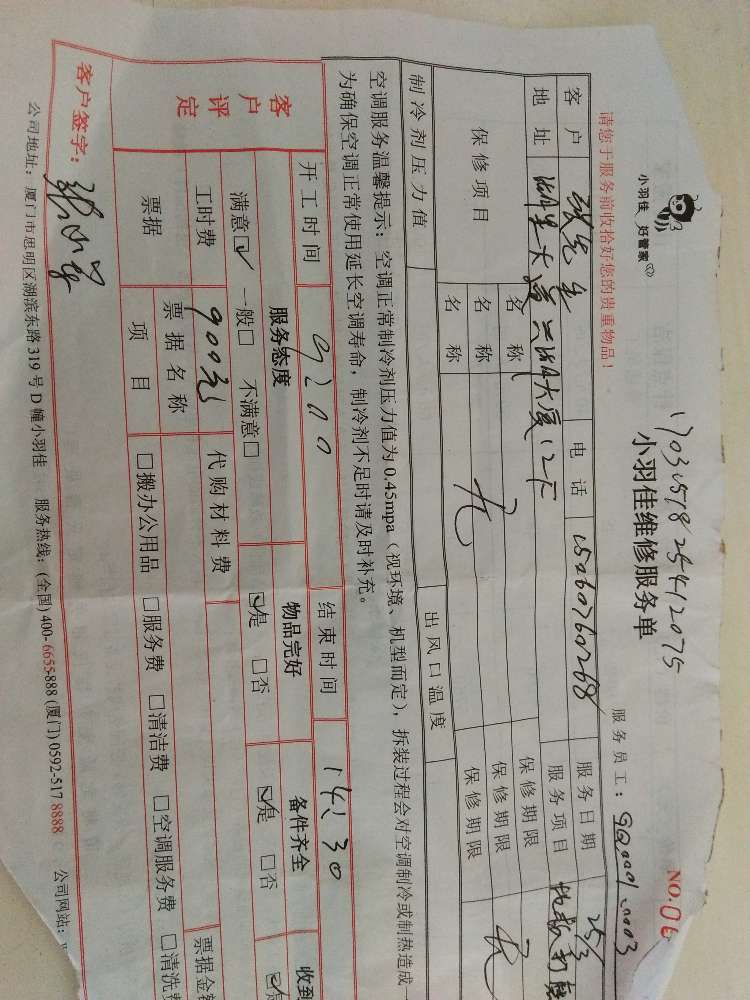 小羽佳 好管家
17031518254412075
小羽佳维修服务单
NO.06
请您于服务前收拾好您的贵重物品！
服务员工：
客户 张先生 电话 15060760268 服务日期 25/3
地址 湖里大道 大厦12F 服务项目
保修项目 名称 保修期限
名称 无 保修期限 无
名称 保修期限
制冷剂压力值 出风口温度
空调服务温馨提示：空调正常制冷剂压力值为0.45mpa（视环境、机型而定），拆装过程会对空调制冷或制热造成一
为确保空调正常使用延长空调寿命，制冷剂不足时请及时补充。
开工时间 9:00 结束时间 14:30
客户评定 服务态度 物品完好 备件齐全 收到
满意☑ 一般□ 不满意□ ☑是 □否 ☑是 □否
工时费 900元 代购材料费
票据 票据名称 票据金额
项目 □搬办公用品 □服务费 □清洁费 □空调服务费 □清洗费
客户签字：
公司地址：厦门市思明区湖滨东路319号D幢小羽佳 服务热线：(全国)400-6655-888 (厦门)0592-517 8888 公司网站：